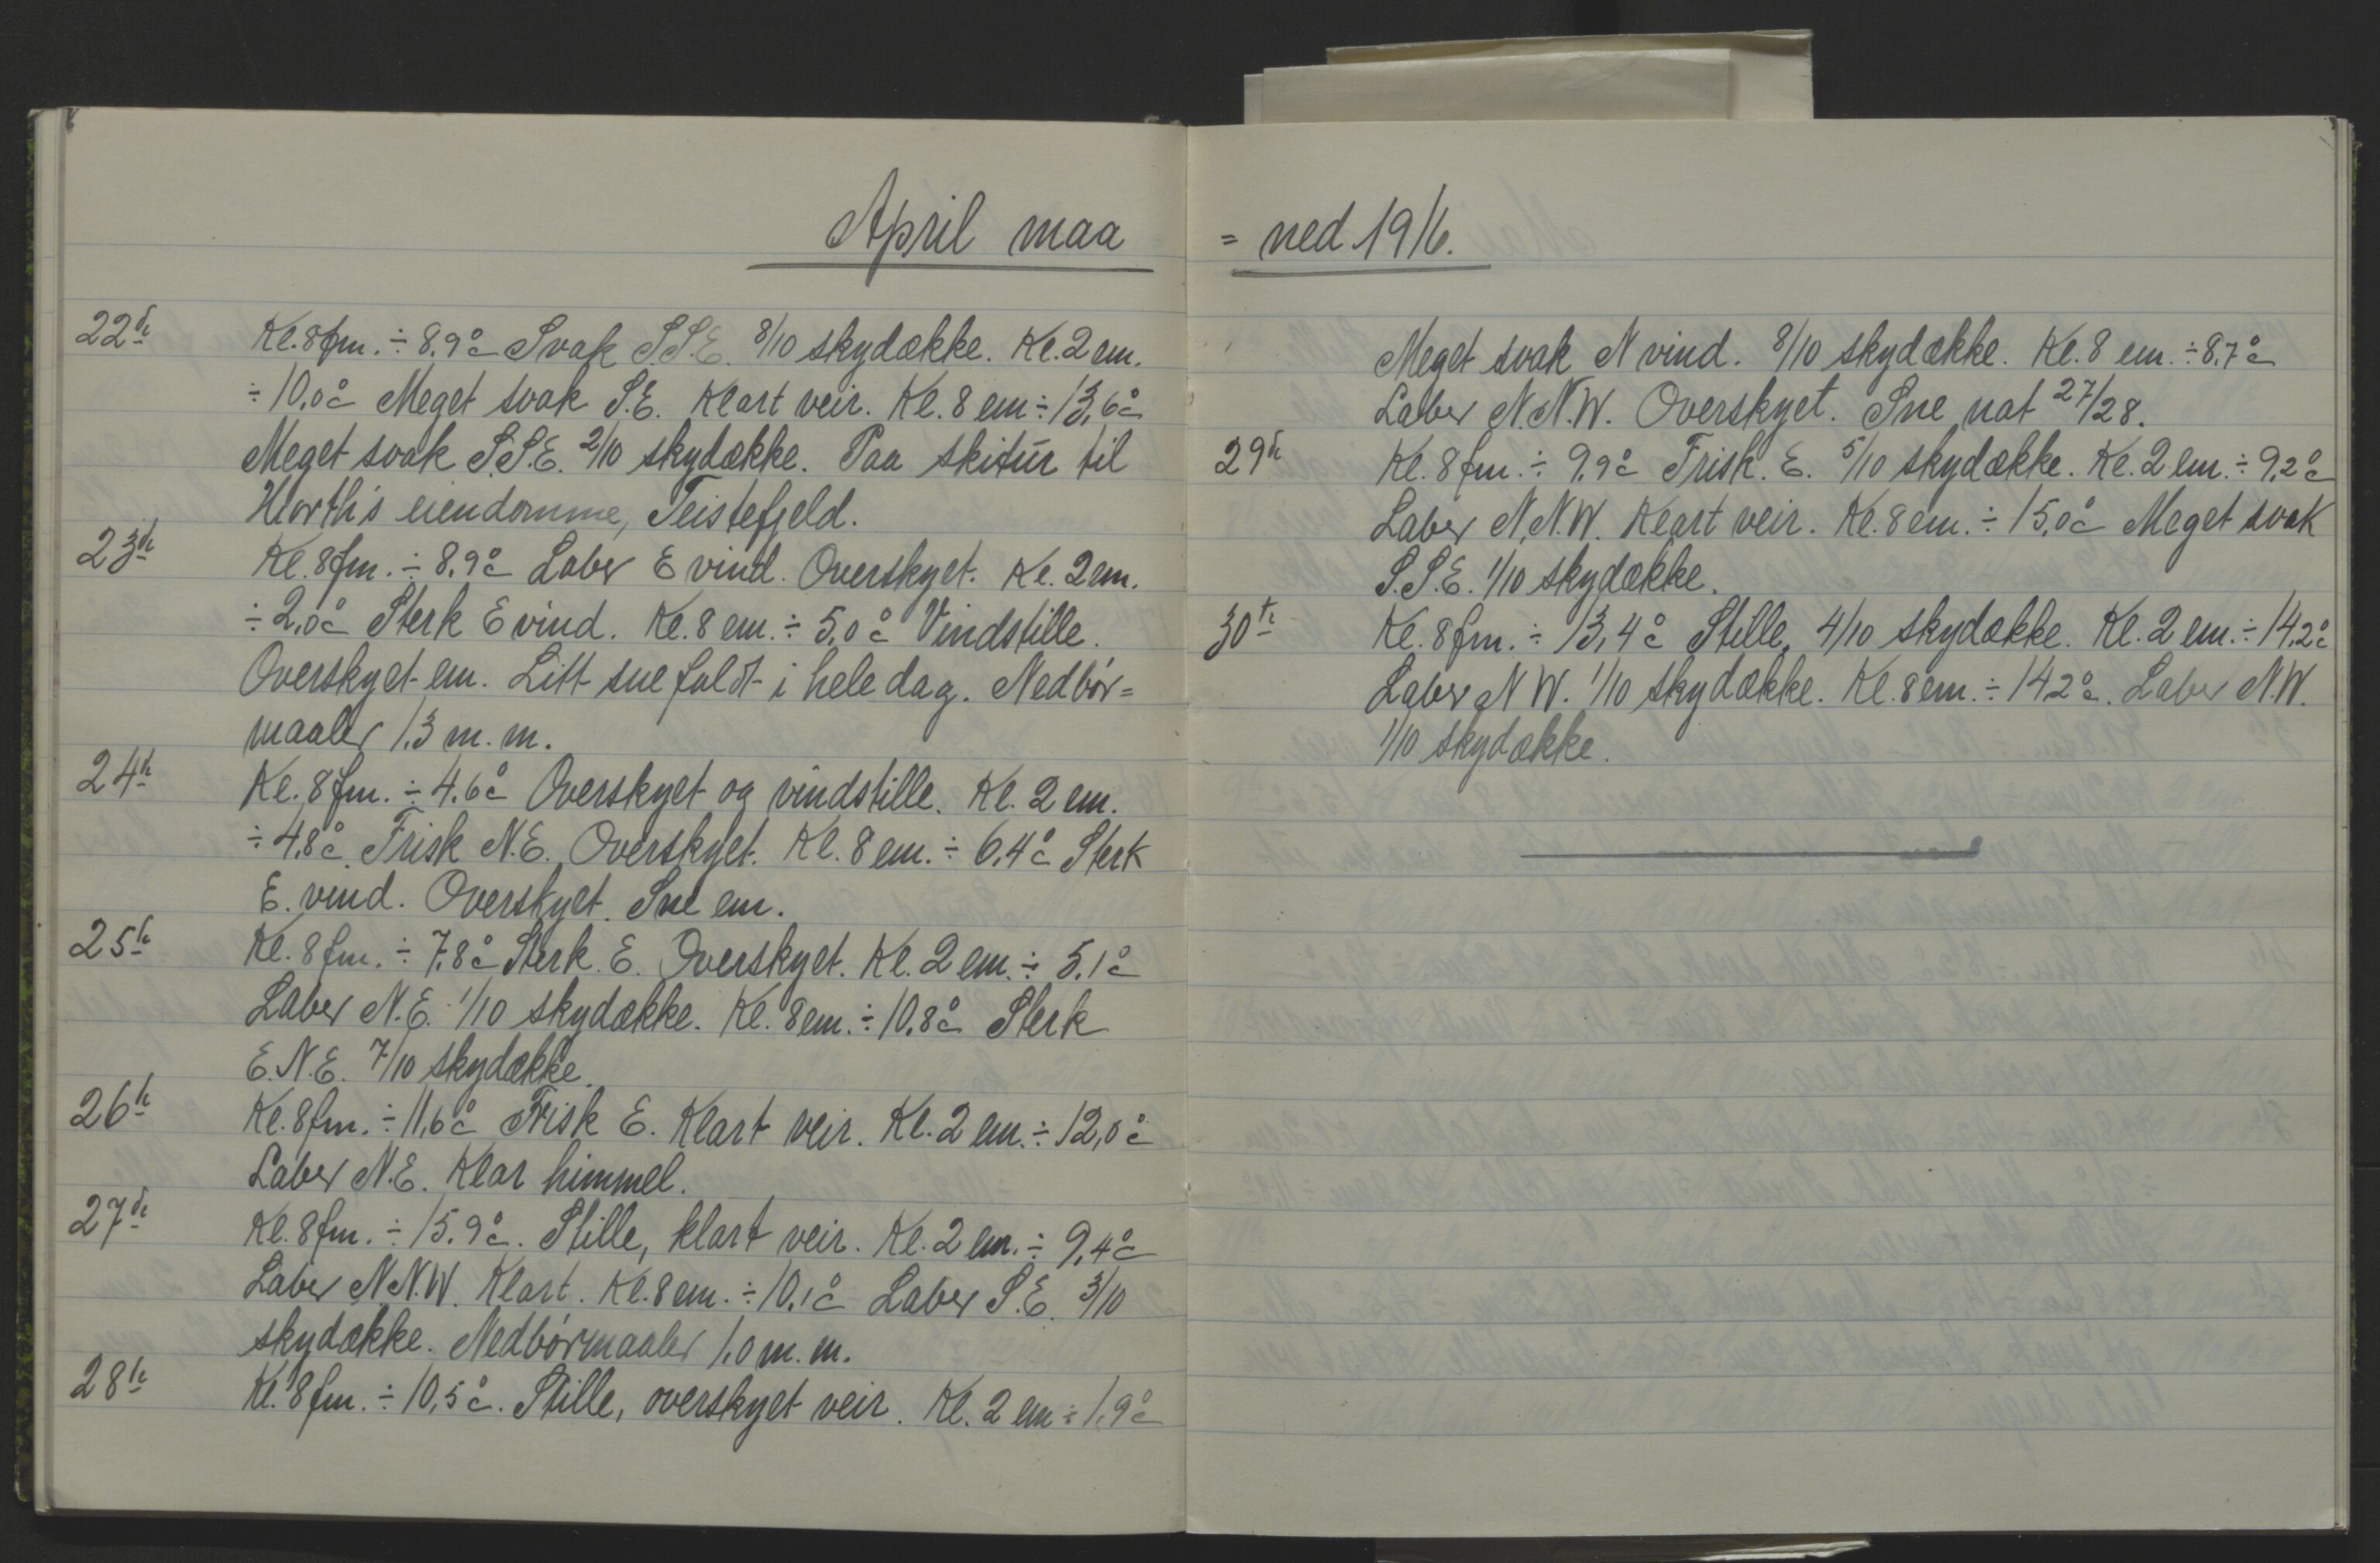 April maa
22de Kl. 8 fm. ÷ 8.9° c Svak S.S.E. 8/10 skydække. Kl. 2 em.
÷ 10,0° c Meget svak S.E. Klart veir. Kl. 8 em ÷ 13,6° c
Meget svak S.S.E. 2/10 skydække. Paa skitur til
eiendomme, Teistefjeld.
23de Kl. 8 fm. ÷ 8.9° c Laber E vind. Overskyet. Kl. 2 em.
÷ 2,0° c Sterk E vind. Kl. 8 em. ÷ 5,0° c Vindstille.
Overskyet em. Litt sne faldt i hele dag. Nedbør=
maaler 1,3 m.m.
24de Kl. 8 fm. ÷ 4.6° c Overskyet og vindstille. Kl. 2 em.
÷ 4,8° c. Frisk N.E. Overskyet. Kl. 8 em. ÷ 6,4° c Sterk
E. vind. Overskyet. Sne em.
25de Kl. 8 fm. ÷ 7,8° c Sterk E. Overskyet. Kl. 2 em. ÷ 5,1° c
Laber N.E. 1/10 skydække. Kl. 8 em. ÷ 10,8° c Sterk
E.N.E. 7/10 skydække.
26de Kl. 8 fm. ÷ 11,6° c Frisk E. Klart veir. Kl. 2 em. ÷ 12,0° c
Laber N.E. Klar himmel.
27de Kl. 8 fm. ÷ 15.9° c. Stille, klart veir. Kl. 2 em. ÷ 9,4° c
Laber N.N.W. Klart. Kl. 8 em. ÷ 10,1° c Laber S.E. 3/10
skydække. Nedbørmaaler 1,0 m.m.
28de Kl. 8 fm. ÷ 10,5° c. Stille, overskyet veir. Kl. 2 em ÷ 1,9° c
= ned 1916.
Meget svak N vind. 8/10 skydække. Kl. 8 em. ÷ 8,7° c
Laber N.N.W. Overskyet. Sne nat 27/28.
29de Kl. 8 fm. ÷ 9,9° c Frisk. E. 5/10 skydække. Kl. 2 em. ÷ 9,2° c
Laber N.N.W. Klart veir. Kl. 8 em. ÷ 15,0° c Meget svak
S.S.E. 1/10 skydække.
30te Kl. 8 fm. ÷ 13,4° c Stille, 4/10 skydække. Kl. 2 em. ÷ 14,2° c
Laber N W. 1/10 skydække. Kl. 8 em. ÷ 14,2° c. Laber N.W.
1/10 skydække.